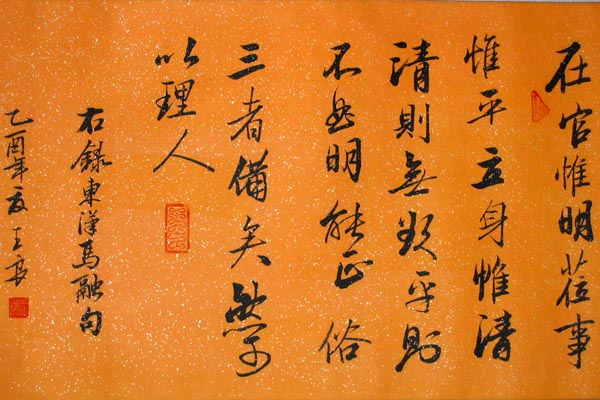 在官惟明莅事
惟平立身惟清
清則無欲平則
不曲明能正俗
三者備矣然可
以理人
右錄東漢馬融句
乙酉年夏王